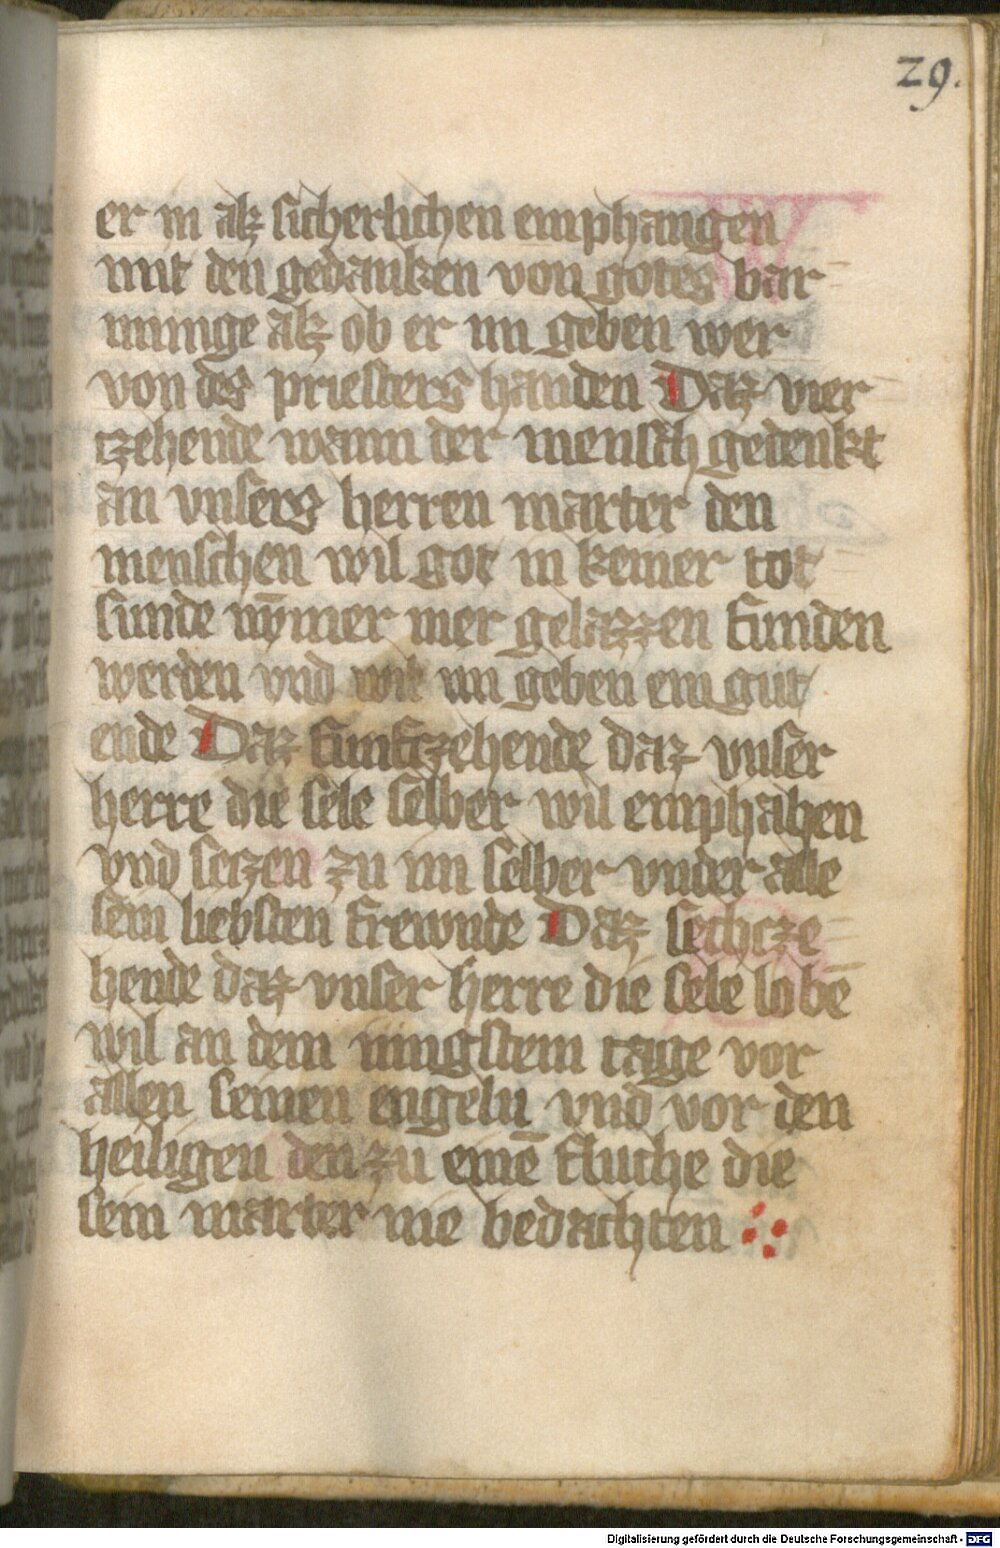 29.
er in alz sicherlichen emphangen
mit den gedanken von gotes bar
munge alz ob er im geben wer
von des priesters handen Daz vier
tzehende wann der mensch gedenkt
an vnsers herren marter den
menschen wil got in keiner tot
sunde nȳmer mer gelazzen funden
werden vnd wil im geben ein gut
ende Daz funfczehende daz vnser
herre die sele selber wil emphahen
vnd seczen zu im selber vnder alle
sein liebsten frewnde Daz sechcze
hende daz vnser herre die sele lobē
wil an dem iungstem tage vor
allen seinen engeln vnd vor den
heiligen den zu einē fluche die
sein marter nie bedachten
Digitalisierung gefördert durch die Deutsche Forschungsgemeinschaft - DFG